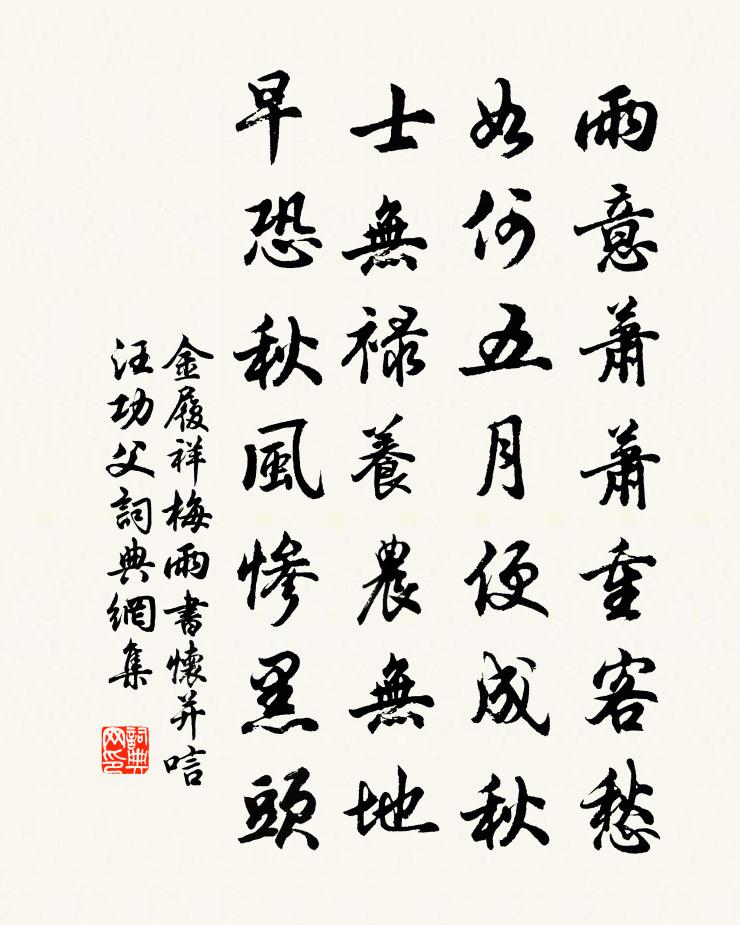 雨意蕭蕭重客愁
如何五月便成秋
士無祿養農無地
早恐秋風慘黑頭
金履祥梅雨書懷并唁
汪功父詞典網集
詞典网印